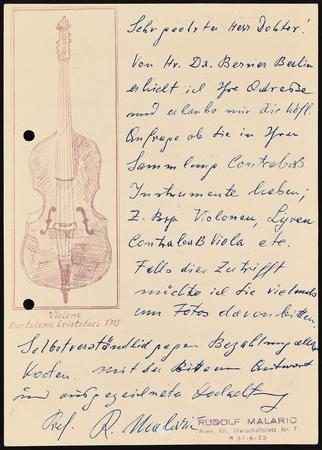 Sehr geehrter Herr Doktor!
Von Hr. Dr. Berner Berlin
erhielt ich Ihre Adresse
und erlaube mir die höfl.
Anfrage ob Sie in Ihrer
Sammlung Contrabaß
Instrumente haben;
z. Bsp. Violonen, Lyren
Contrabaß Viola etc.
Falls dies zutrifft
möchte ich Sie vielmals
um Fotos davon bitten.
Violone
Bartolomeo Cristofori 1715
Selbstverständlich gegen Bezahlung aller
Kosten. mit der Bitte um Antwort
und ausgezeichnete Hochachtung
Prof. R. Malaric
RUDOLF MALARIC
Wien, XII, Marschallplatz Nr. 7
R 37-6-53